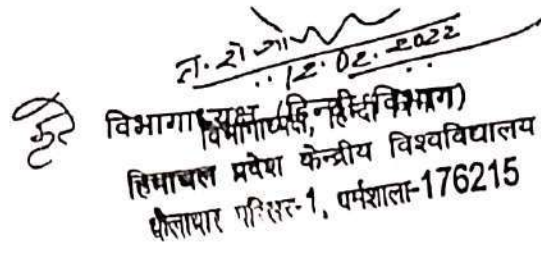 12.02.2022
कृते विभागाध्यक्ष (हिन्दी विभाग)
विभागाध्यक्ष, हिन्दी विभाग
हिमाचल प्रदेश केन्द्रीय विश्वविद्यालय
धौलाधार परिसर-1, धर्मशाला-176215